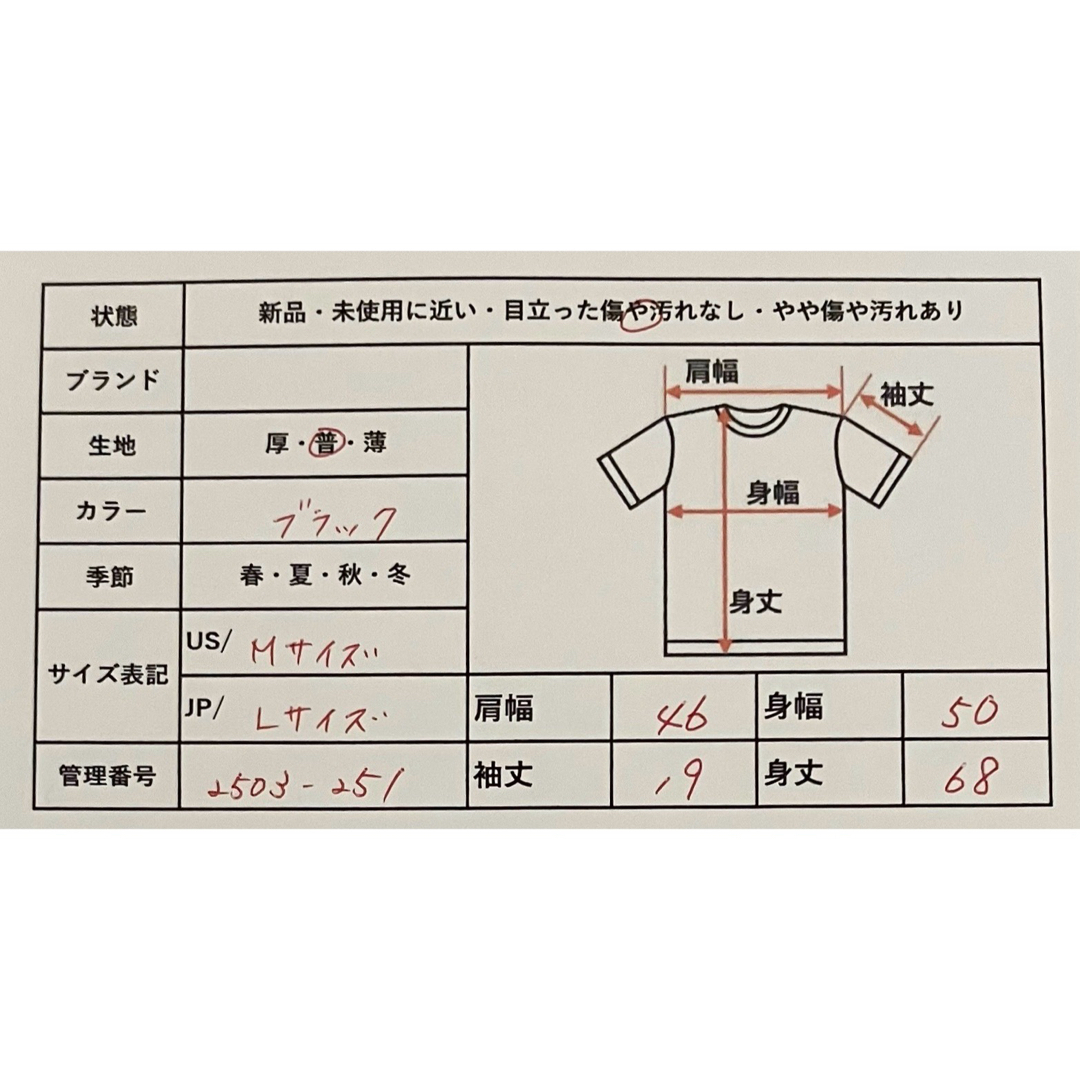 状態 新品・未使用に近い・目立った傷や汚れなし・やや傷や汚れあり
ブランド
生地 厚・普・薄
カラー ブラック
季節 春・夏・秋・冬
サイズ表記 US/ Mサイズ
JP/ Lサイズ
管理番号 2503-251
肩幅
袖丈
身幅
身丈
肩幅 46 身幅 50
袖丈 19 身丈 68